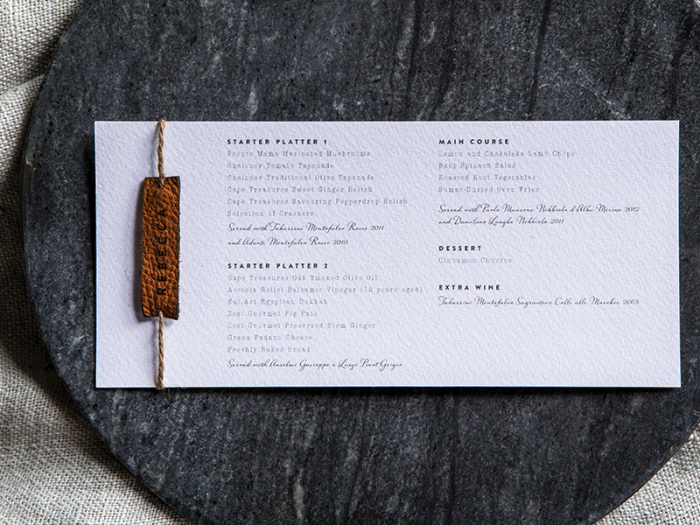 REBECCA
STARTER PLATTER 1
Pesto Mama Marinated Mushrooms
Chaloner Tomato Tapenade
Chaloner Traditional Olive Tapenade
Cape Treasures Sweet Ginger Relish
Cape Treasures Savouring Pepperdrop Relish
Selection of Crackers
Served with Tabarrini Montefalco Rosso 2011
and Adanti Montefalco Rosso 2010
STARTER PLATTER 2
Cape Treasures Oak Smoked Olive Oil
Acetaia Balsamic Vinegar (12 years aged)
Art Egyptian Dukkah
Gourmet Fig Pate
Gourmet Preserved Stem Ginger
Grana Padano Cheese
Freshly Baked Bread
Served with Anselmi Giuseppe e Luigi Pinot Grigio
MAIN COURSE
Lemon and Chakalaka Lamb Chops
Baby Spinach Salad
Roasted Root Vegetables
Sumac-Dusted Oven Fries
Served with Paolo Manzone Nebbiolo d'Alba 2012
and Langhe Nebbiolo 2011
DESSERT
Cinnamon Churros
EXTRA WINE
Tabarrini Montefalco Sagrantino Colle alle Macchie 2005